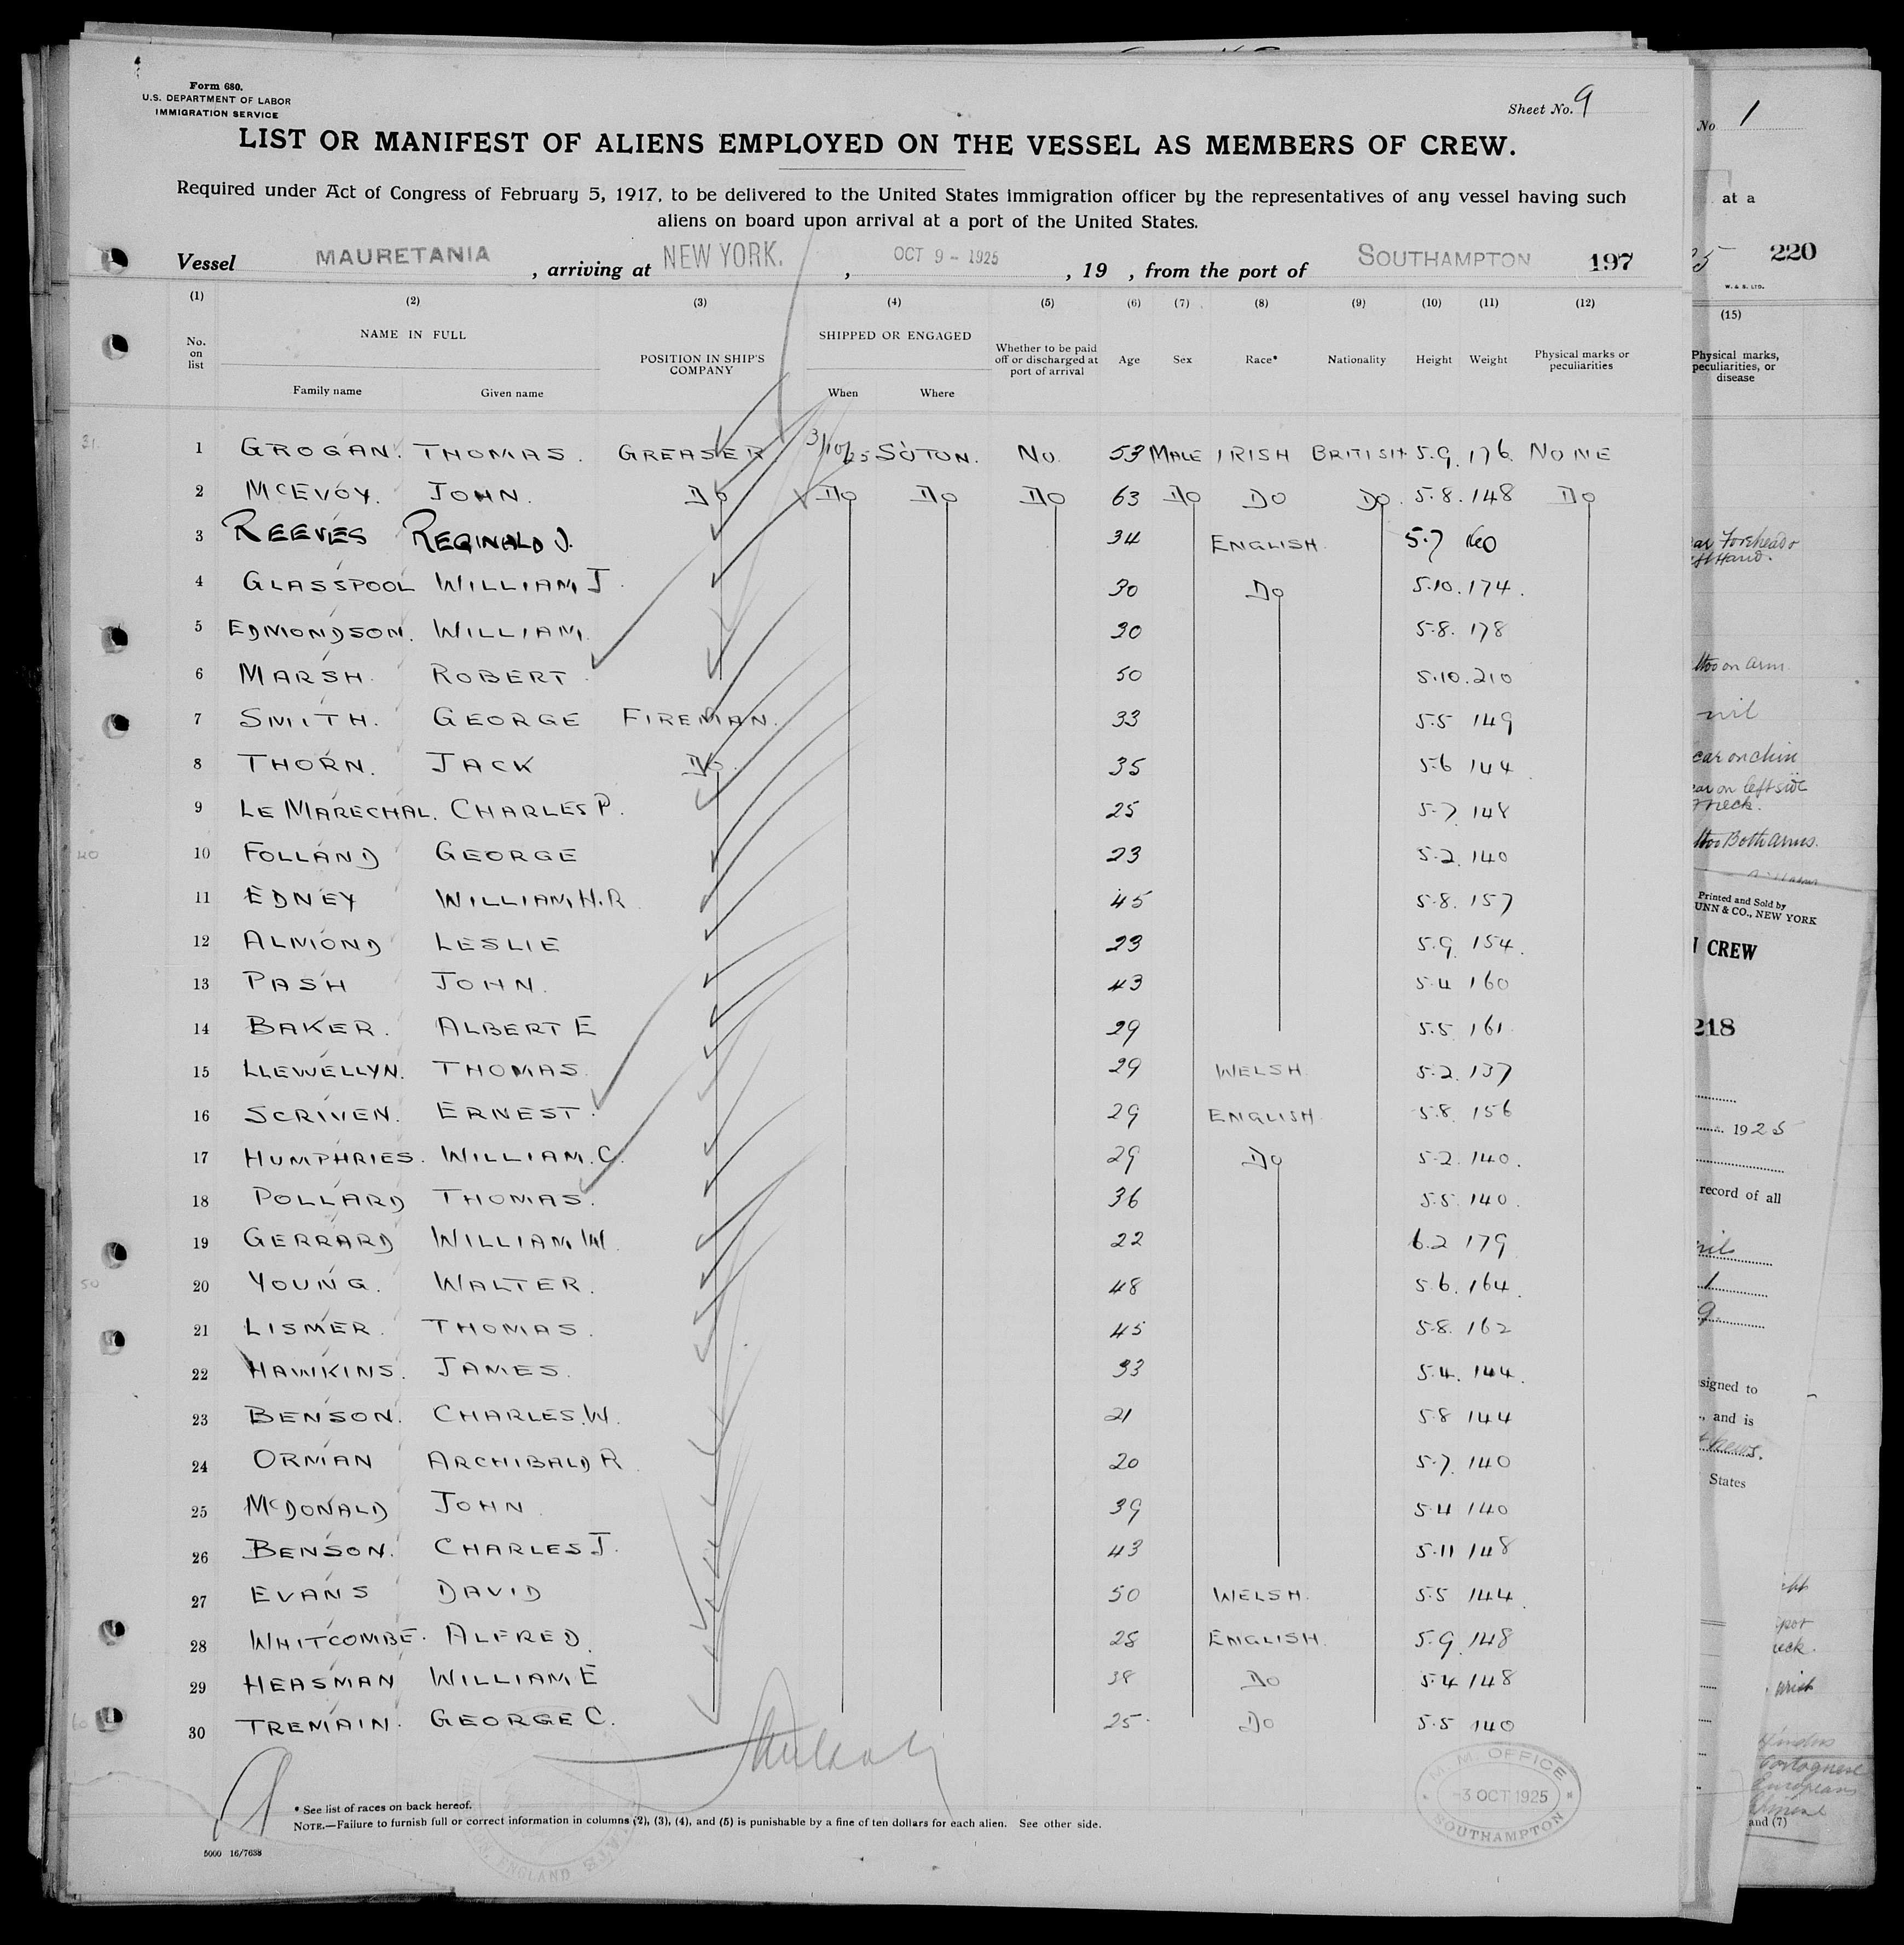 Form 680.
U.S. DEPARTMENT OF LABOR
IMMIGRATION SERVICE
Sheet No. 9
LIST OR MANIFEST OF ALIENS EMPLOYED ON THE VESSEL AS MEMBERS OF CREW.
Required under Act of Congress of February 5, 1917, to be delivered to the United States immigration officer by the representatives of any vessel having such
aliens on board upon arrival at a port of the United States.
Vessel MAURETANIA, arriving at NEW YORK., OCT 9 - 1925, 19 , from the port of SOUTHAMPTON 197
(1) (2) (3) (4) (5) (6) (7) (8) (9) (10) (11) (12)
No. on list NAME IN FULL POSITION IN SHIP'S COMPANY SHIPPED OR ENGAGED Whether to be paid off or discharged at port of arrival Age Sex Race* Nationality Height Weight Physical marks or peculiarities
Family name Given name When Where
1 GROGAN. THOMAS. GREASER 3/10/25 SOTON. No. 53 MALE IRISH BRITISH 5.9. 176 NONE
2 McEVOY. JOHN. Do Do Do Do 63 Do Do Do. 5.8. 148 Do
3 REEVES REGINALD J. 34 ENGLISH. 5.7 160
4 GLASSPOOL WILLIAM J. 30 Do 5.10. 174.
5 EDMONDSON. WILLIAM. 30 5.8. 178
6 MARSH. ROBERT. 50 5.10. 210
7 SMITH. GEORGE FIREMAN. 33 5.5 149
8 THORN. JACK Do. 35 5.6 144.
9 LE MARECHAL. CHARLES P. 25 5.7 148
10 FOLLAND GEORGE 23 5.2. 140
11 EDNEY WILLIAM. H.R. 45 5.8. 157
12 ALMOND LESLIE 23 5.9 154.
13 PASH JOHN. 43 5.4 160
14 BAKER. ALBERT E 29 5.5 161
15 LLEWELLYN. THOMAS. 29 WELSH 5.2. 137
16 SCRIVEN. ERNEST. 29 ENGLISH. 5.8 156
17 HUMPHRIES. WILLIAM. C. 29 Do 5.2. 140.
18 POLLARD THOMAS. 36 5.5. 140.
19 GERRARD WILLIAM. W. 22 6.2 179
20 YOUNG. WALTER. 48 5.6. 164.
21 LISMER. THOMAS. 45 5.8. 162
22 HAWKINS. JAMES. 33 5.4. 144.
23 BENSON. CHARLES. W. 21 5.8 144
24 ORMAN ARCHIBALD R. 20 5.7. 140
25 McDONALD JOHN. 39 5.4 140
26 BENSON. CHARLES J. 43 5.11 148
27 EVANS DAVID 50 WELSH. 5.5 144.
28 WHITCOMBE. ALFRED. 28 ENGLISH. 5.9. 148
29 HEASMAN WILLIAM. E 38 Do 5.4 148
30 TREMAIN. GEORGE C. 25 Do 5.5 140
* See list of races on back hereof.
NOTE.—Failure to furnish full or correct information in columns (2), (3), (4), and (5) is punishable by a fine of ten dollars for each alien. See other side.
5000 16/7638
M. M. OFFICE
-3 OCT 1925
SOUTHAMPTON
ENGLAND
No 1
at a
220
W. & S. LTD.
(15)
Physical marks,
peculiarities, or
disease
Forehead
Hand.
on arm.
nil
on chin
on left side
neck.
Both arms.
Printed and Sold by
UNN & CO., NEW YORK
CREW
218
1925
record of all
nil
1
9
signed to
, and is
States
Portuguese
European
and (7)